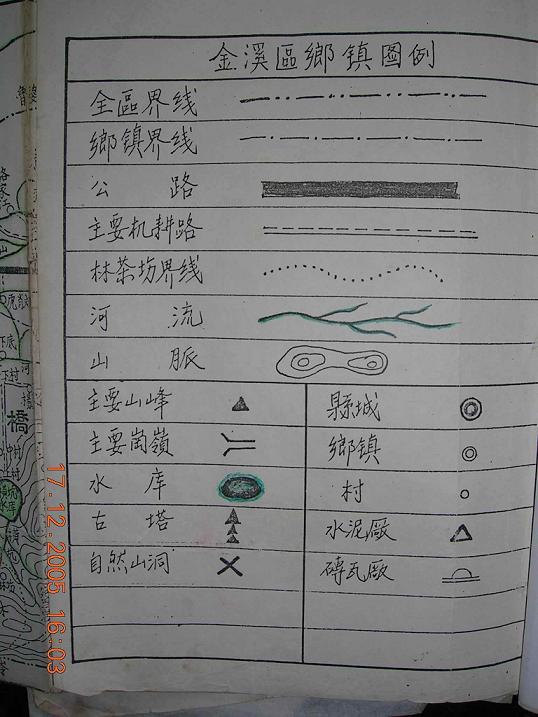 金溪區鄉镇图例
全區界线
鄉镇界线
公路
主要机耕路
林茶坊界线
河流
山脈
主要山峰
縣城
主要崗嶺
鄉镇
水库
村
古塔
水泥廠
自然山洞
磚瓦廠
橋
17.12.2005 16:03